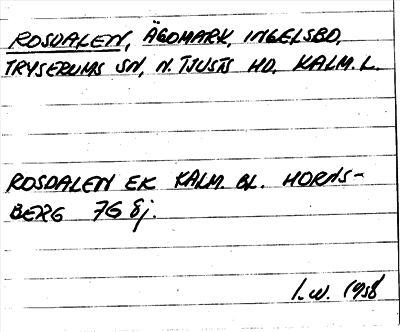 ROSDALEN, ÄGOMARK, INGELSBO,
TRYSERUMS SN, N. TJUSTS HD, KALM. L.
ROSDALEN EK KALM. BL. HORNS-
BERG 7G 8j.
I.W. 1958